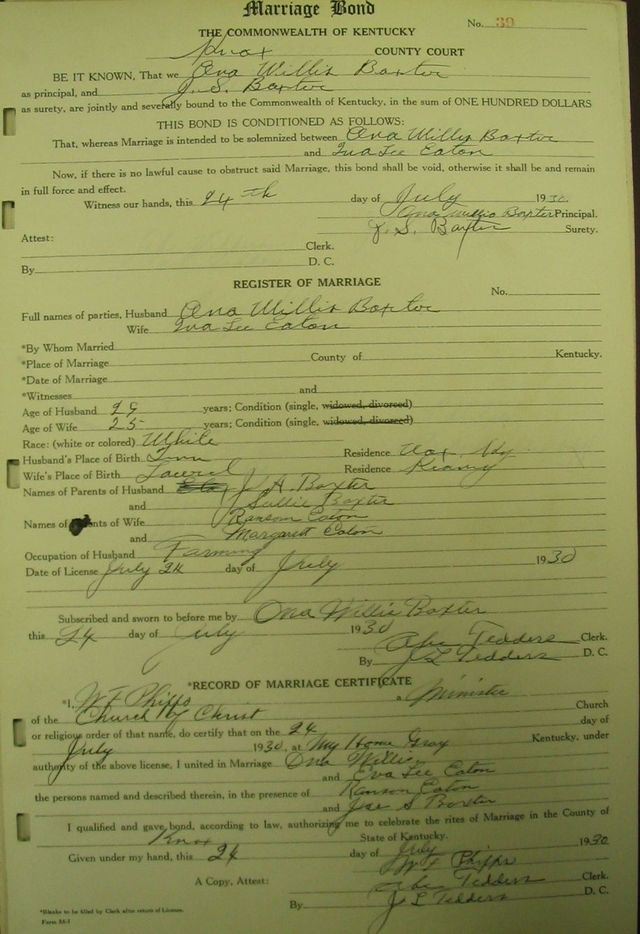 Marriage Bond
No. 39
THE COMMONWEALTH OF KENTUCKY
Knox COUNTY COURT
BE IT KNOWN, That we Ona Willis Baxter
as principal, and J. S. Baxter
as surety, are jointly and severally bound to the Commonwealth of Kentucky, in the sum of ONE HUNDRED DOLLARS
THIS BOND IS CONDITIONED AS FOLLOWS:
That, whereas Marriage is intended to be solemnized between Ona Willis Baxter
and Iva Lee Eaton
Now, if there is no lawful cause to obstruct said Marriage, this bond shall be void, otherwise it shall be and remain
in full force and effect.
Witness our hands, this 24th day of July 1930.
Ona Willis Baxter Principal.
J. S. Baxter Surety.
Attest:
Clerk.
By D. C.
REGISTER OF MARRIAGE
No.
Full names of parties, Husband Ona Willis Baxter
Wife Iva Lee Eaton
*By Whom Married
*Place of Marriage County of Kentucky.
*Date of Marriage
*Witnesses and
Age of Husband 29 years; Condition (single, widowed, divorced)
Age of Wife 25 years; Condition (single, widowed, divorced)
Race: (white or colored) White
Husband's Place of Birth Residence Ky.
Wife's Place of Birth Laurel Residence
Names of Parents of Husband J. H. Baxter
and Sallie Baxter
Names of Parents of Wife Ransom Eaton
and Margarett Eaton
Occupation of Husband Farming
Date of License July 24 day of July 1930
Subscribed and sworn to before me by Ona Willis Baxter
this 24 day of July 1930
Abe Tedders Clerk.
By J L Tedders D. C.
*RECORD OF MARRIAGE CERTIFICATE
*I, W F Phipps a Ministic Church
of the Church of Christ
or religious order of that name, do certify that on the 24 day of
July 1930, at My Home Gray Kentucky, under
authority of the above license, I united in Marriage Ona Willis
and Eva Lee Eaton
the persons named and described therein, in the presence of Ranson Eaton
and Joe S Baxter
I qualified and gave bond, according to law, authorizing me to celebrate the rites of Marriage in the County of
Knox State of Kentucky.
Given under my hand, this 24 day of July 1930
W F Phipps
A Copy, Attest: Abe Tedders Clerk.
By J L Tedders D. C.
*Blanks to be filled by Clerk after return of License.
Form M-1